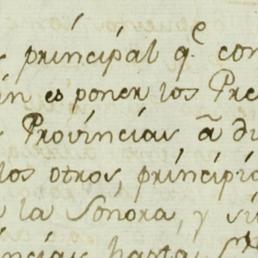 principal q.e con
es poner los Pre
Provincias à di
los otros, principia
la Sonora, y si
incias hasta